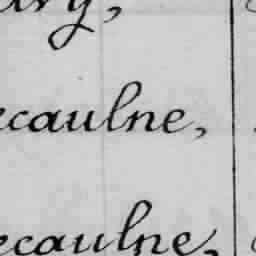 ary,
ecaulne,
ecaulne,